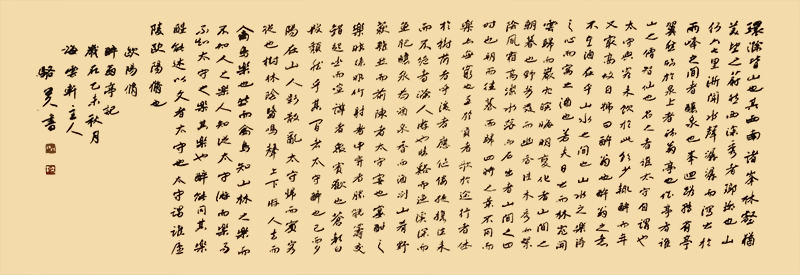 環滁皆山也其西南諸峰林壑尤
美望之蔚然而深秀者瑯琊也山
行六七里漸聞水聲潺潺而瀉出於
兩峰之間者釀泉也峰回路轉有亭
翼然臨於泉上者醉翁亭也作亭者誰
山之僧智仙也名之者誰太守自謂也
太守與客來飲於此飲少輒醉而年
又最高故自號曰醉翁也醉翁之意
不在酒在乎山水之間也山水之樂得
之心而寓之酒也若夫日出而林霏開
雲歸而巖穴暝晦明變化者山間之
朝暮也野芳發而幽香佳木秀而繁
陰風霜高潔水落而石出者山間之四
時也朝而往暮而歸四時之景不同而
樂亦無窮也至於負者歌於途行者休
於樹前者呼後者應傴僂提攜往來
而不絕者滁人遊也臨谿而漁溪深而
魚肥釀泉為酒泉香而酒洌山肴野
蔌雜然而前陳者太守宴也宴酣之
樂非絲非竹射者中弈者勝觥籌交
錯起坐而喧譁者眾賓歡也蒼顏白
髮頹然乎其間者太守醉也已而夕
陽在山人影散亂太守歸而賓客
從也樹林陰翳鳴聲上下遊人去而
禽鳥樂也然而禽鳥知山林之樂而
不知人之樂人知從太守遊而樂而
不知太守之樂其樂也醉能同其樂
醒能述以文者太守也太守謂誰廬
陵歐陽脩也
歐陽脩
醉翁亭記
歲在乙未秋月
海雲軒主人